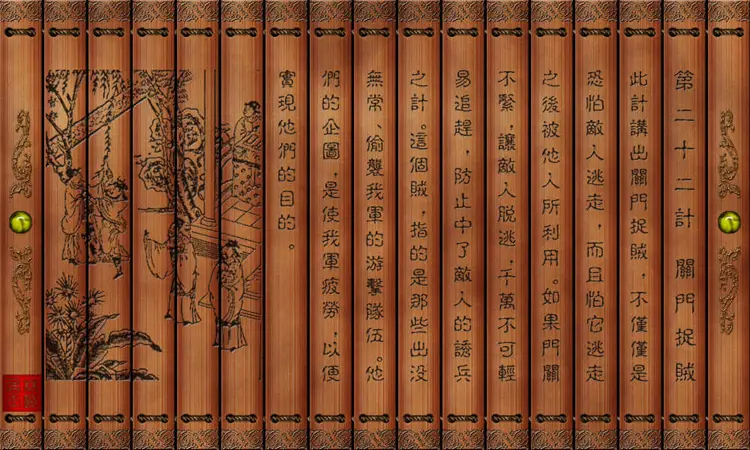 第二十二計 關門捉賊
此計講出關門捉賊，不僅僅是
恐怕敵人逃走，而且怕它逃走
之後被他人所利用。如果門關
不緊，讓敵人脫逃，千萬不可輕
易追趕，防止中了敵人的誘兵
之計。這個賊，指的是那些出没
無常、偷襲我軍的游擊隊伍。他
們的企圖，是使我軍疲勞，以便
實現他們的目的。